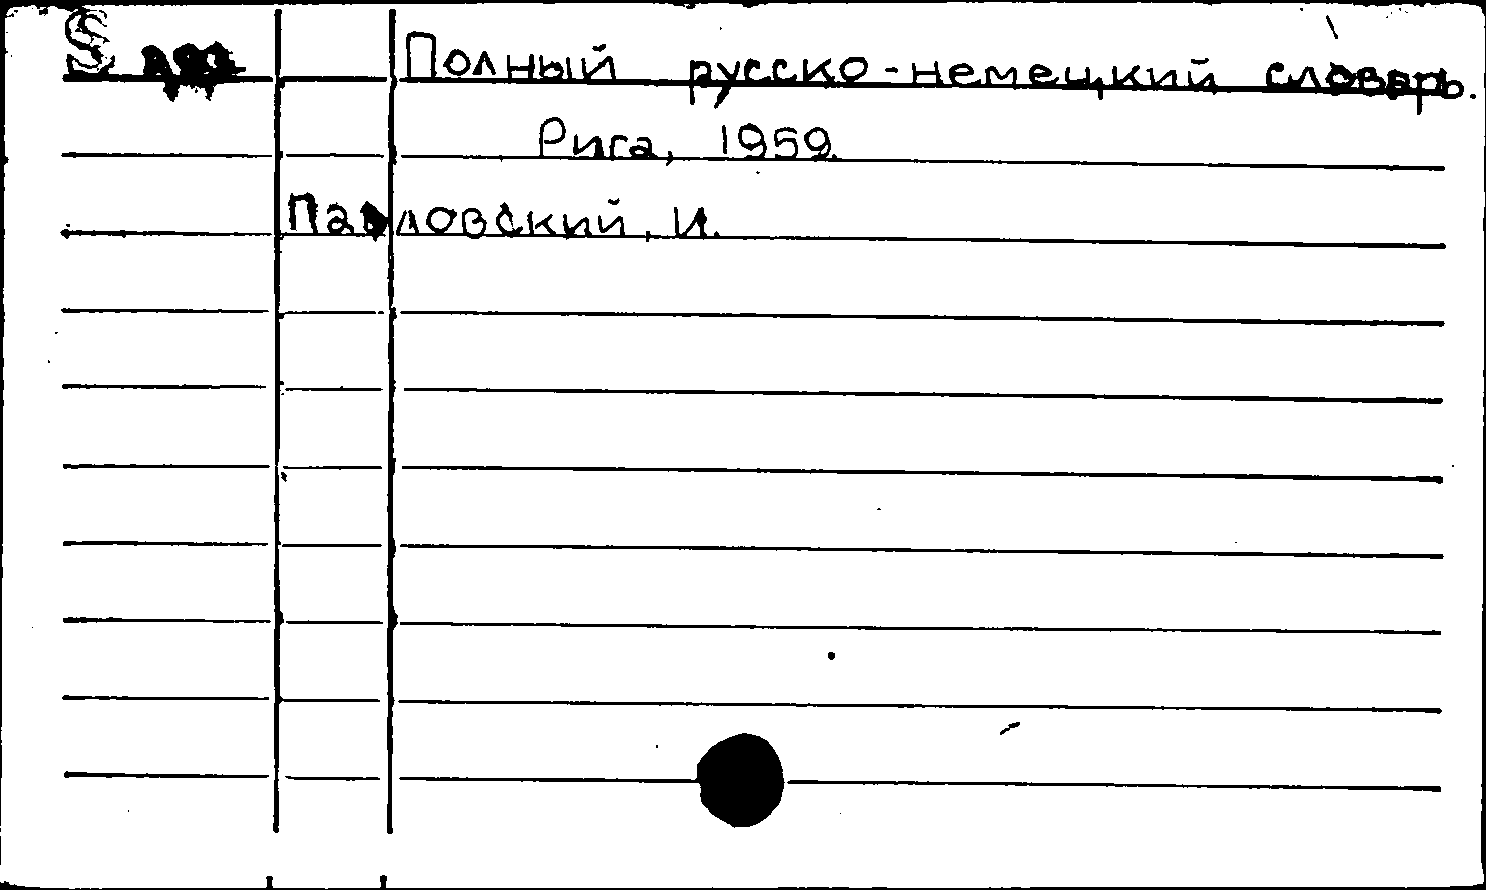 S Полный русско-немецкий словарь.
Рига, 1959.
Павловский, И.